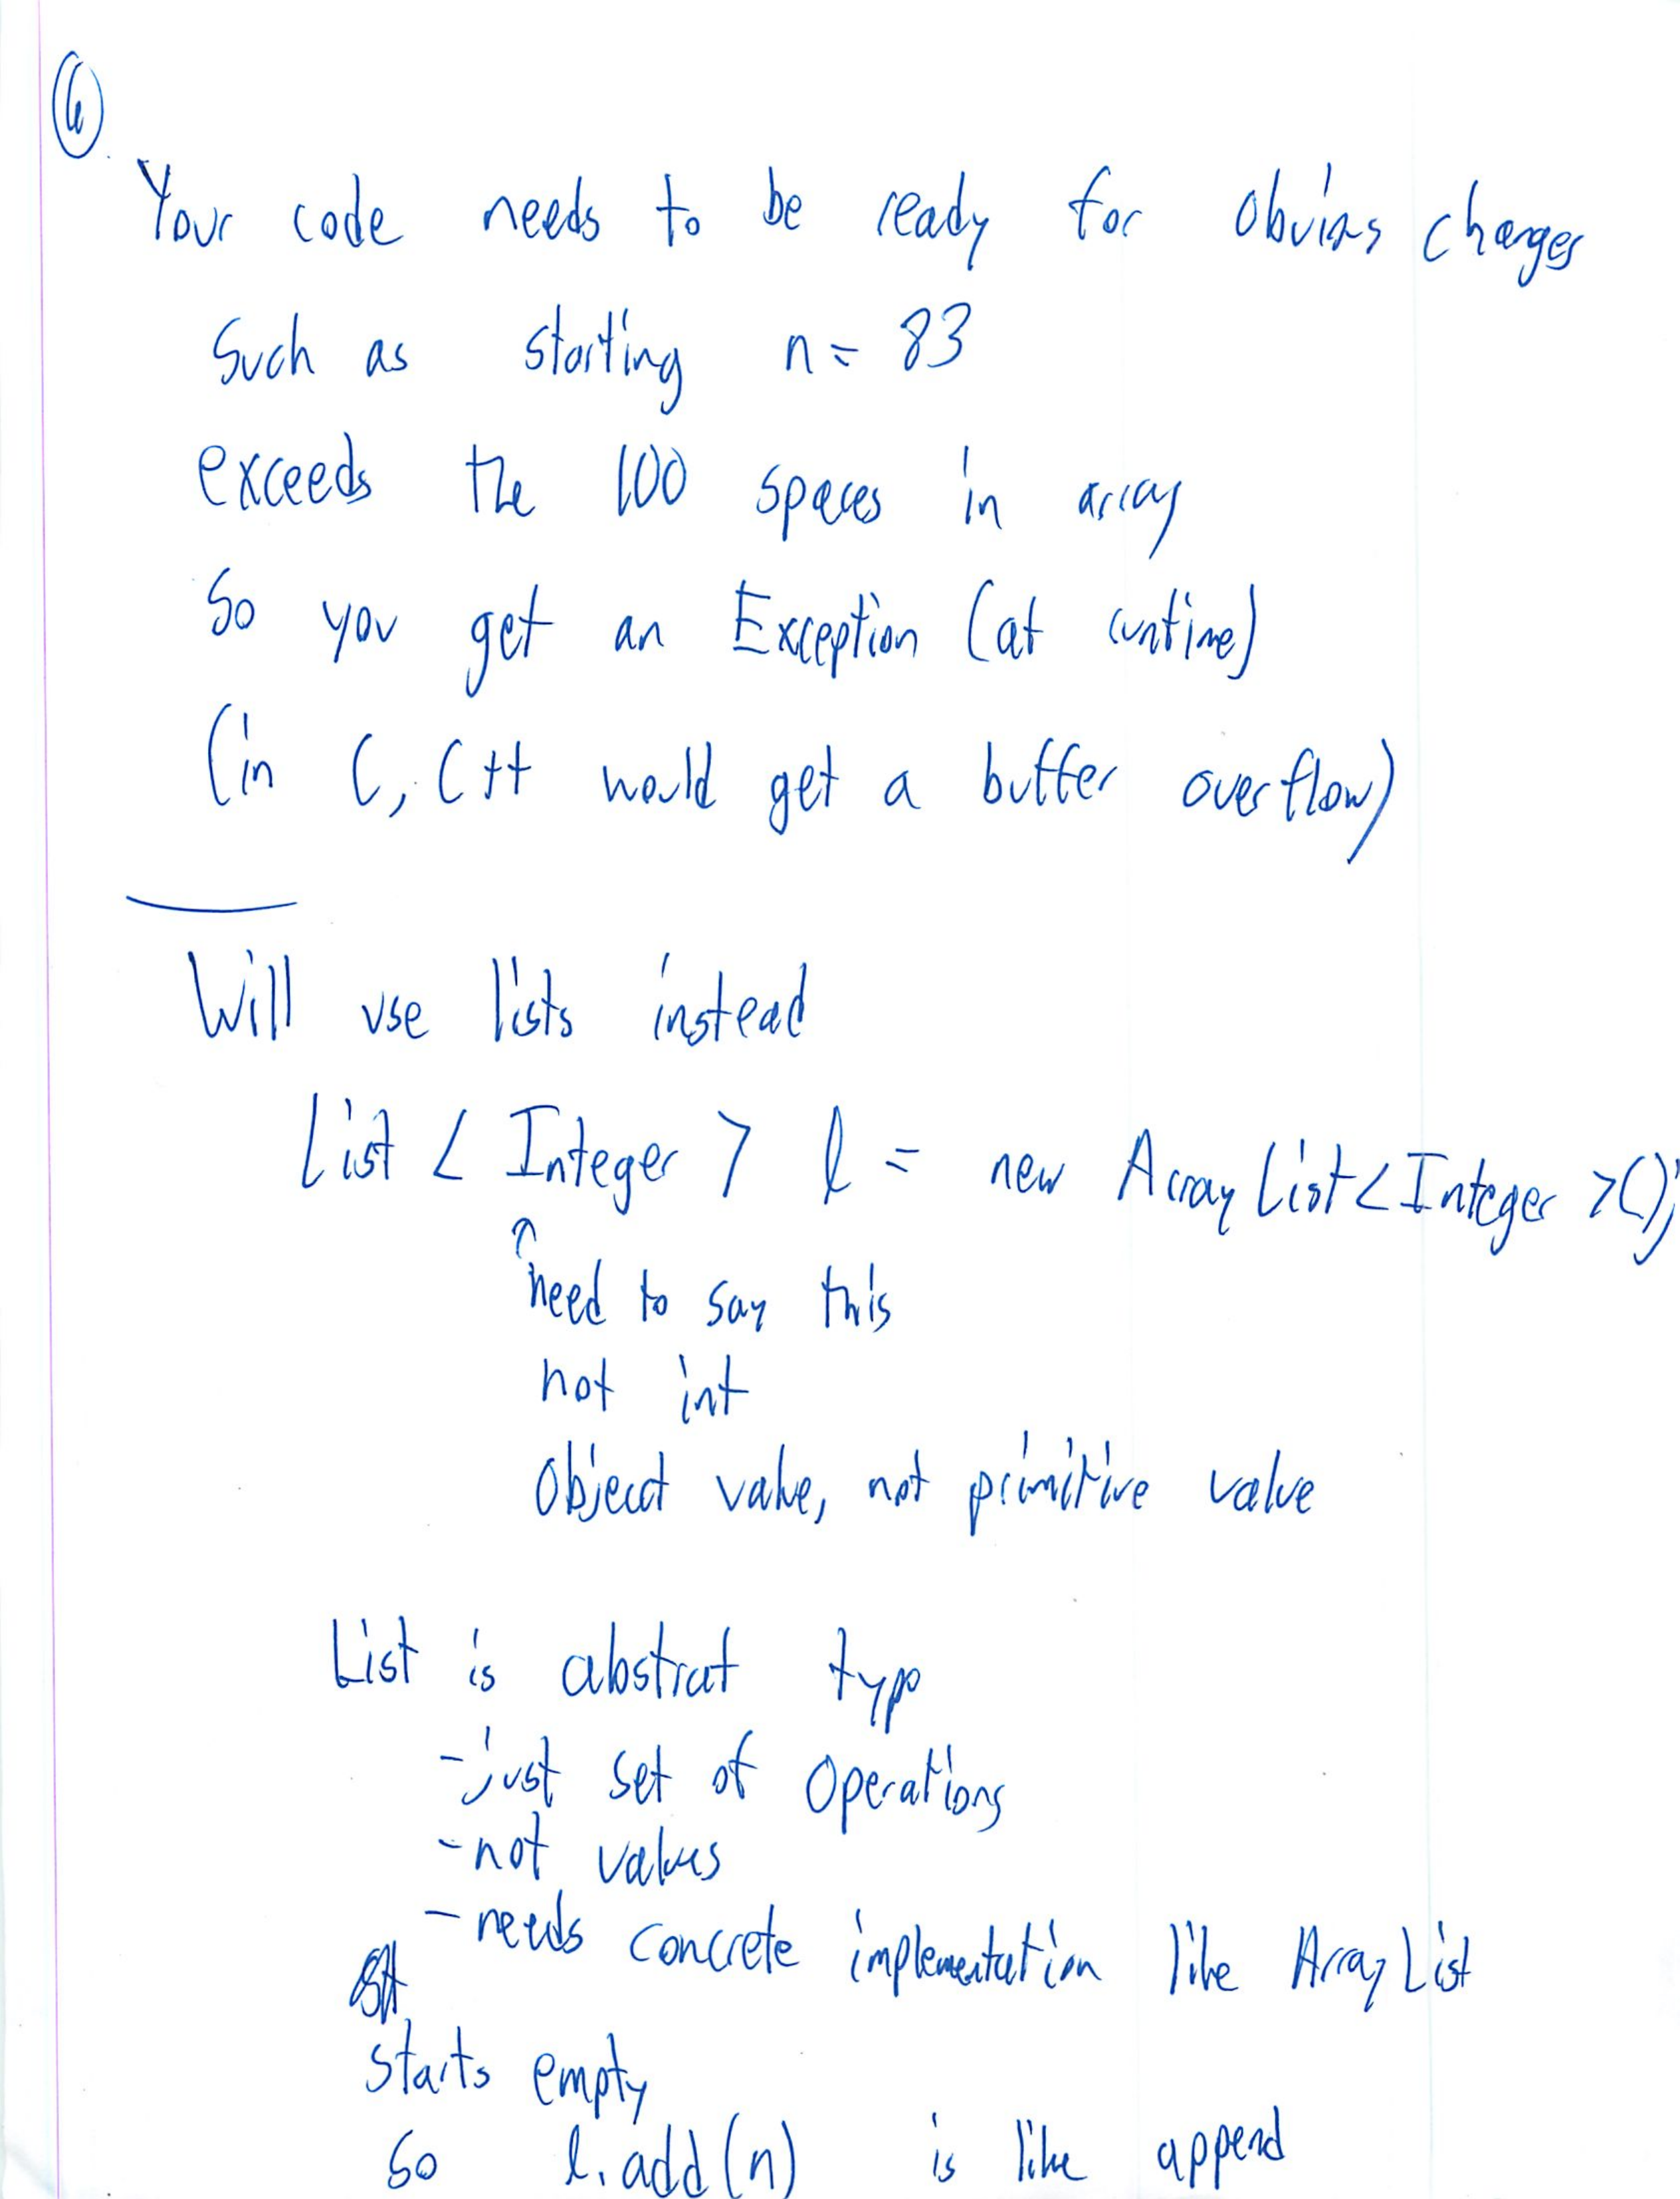 6
Your code needs to be ready for obvios changes
Such as starting n = 83
exceeds the 100 spaces in array
So you get an Exception (at runtime)
(in C, C++ would get a buffer overflow)
Will use lists instead
List < Integer > l = new ArrayList<Integer >();
↑
need to say this
not int
Object value, not primitive value
List is abstrat typ
- just set of Operations
- not values
- needs concrete implementation like ArrayList
Starts empty
So l.add(n) is like append